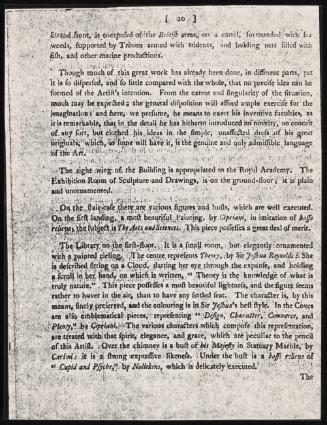 [ 20 ]
Strand front, is composed of the British arms, on a camel, surrounded with sea
weeds, supported by Tritons armed with tridents, and holding nets filled with
fish, and other marine productions.
Though much of this great work has already been done, in different parts, yet
it is so dispersed, and so little compared with the whole, that no precise idea can be
formed of the Artist's intention. From the extent and singularity of the situation,
much may be expected; the general disposition will afford ample exercise for the
imagination: and here, we presume, he means to exert his inventive faculties, as
it is remarkable, that in the detail he has hitherto introduced no novelty, no conceit
of any sort, but clothed his ideas in the simple, unaffected dress of his great
originals, which, as some will have it, is the genuine and only admissible language
of the Art.
The right wing of the Building is appropriated to the Royal Academy. The
Exhibition Room of Sculpture and Drawings, is on the ground-floor; it is plain
and unornamented.
On the stair-case there are various figures and busts, which are well executed.
On the first landing, a most beautiful Painting, by Cipriani, in imitation of basso
relievo; the subject is The Arts and Sciences. This piece possesses a great deal of merit.
The Library on the first-floor. It is a small room, but elegantly ornamented
with a painted cieling. The centre represents Theory, by Sir Joshua Reynolds. She
is described sitting on a Cloud, darting her eye through the expanse, and holding
a scroll in her hand, on which is written, " Theory is the knowledge of what is
truly nature." This piece possesses a most beautiful lightness, and the figure seems
rather to hover in the air, than to have any settled seat. The character is, by this
means, finely preserved, and the colouring is in Sir Joshua's best style. In the Coves
are also emblematic pieces, representing " Design, Character, Commerce, and
Plenty," by Cipriani. The various characters which compose this representation,
are treated with that spirit, elegance, and grace, which are peculiar to the pencil
of this Artist. Over the chimney is a bust of his Majesty in Statuary Marble, by
Carlini; it is a strong expressive likeness. Under the bust is a basso relievo of
" Cupid and Psyche," by Nollekens, which is delicately executed.
The